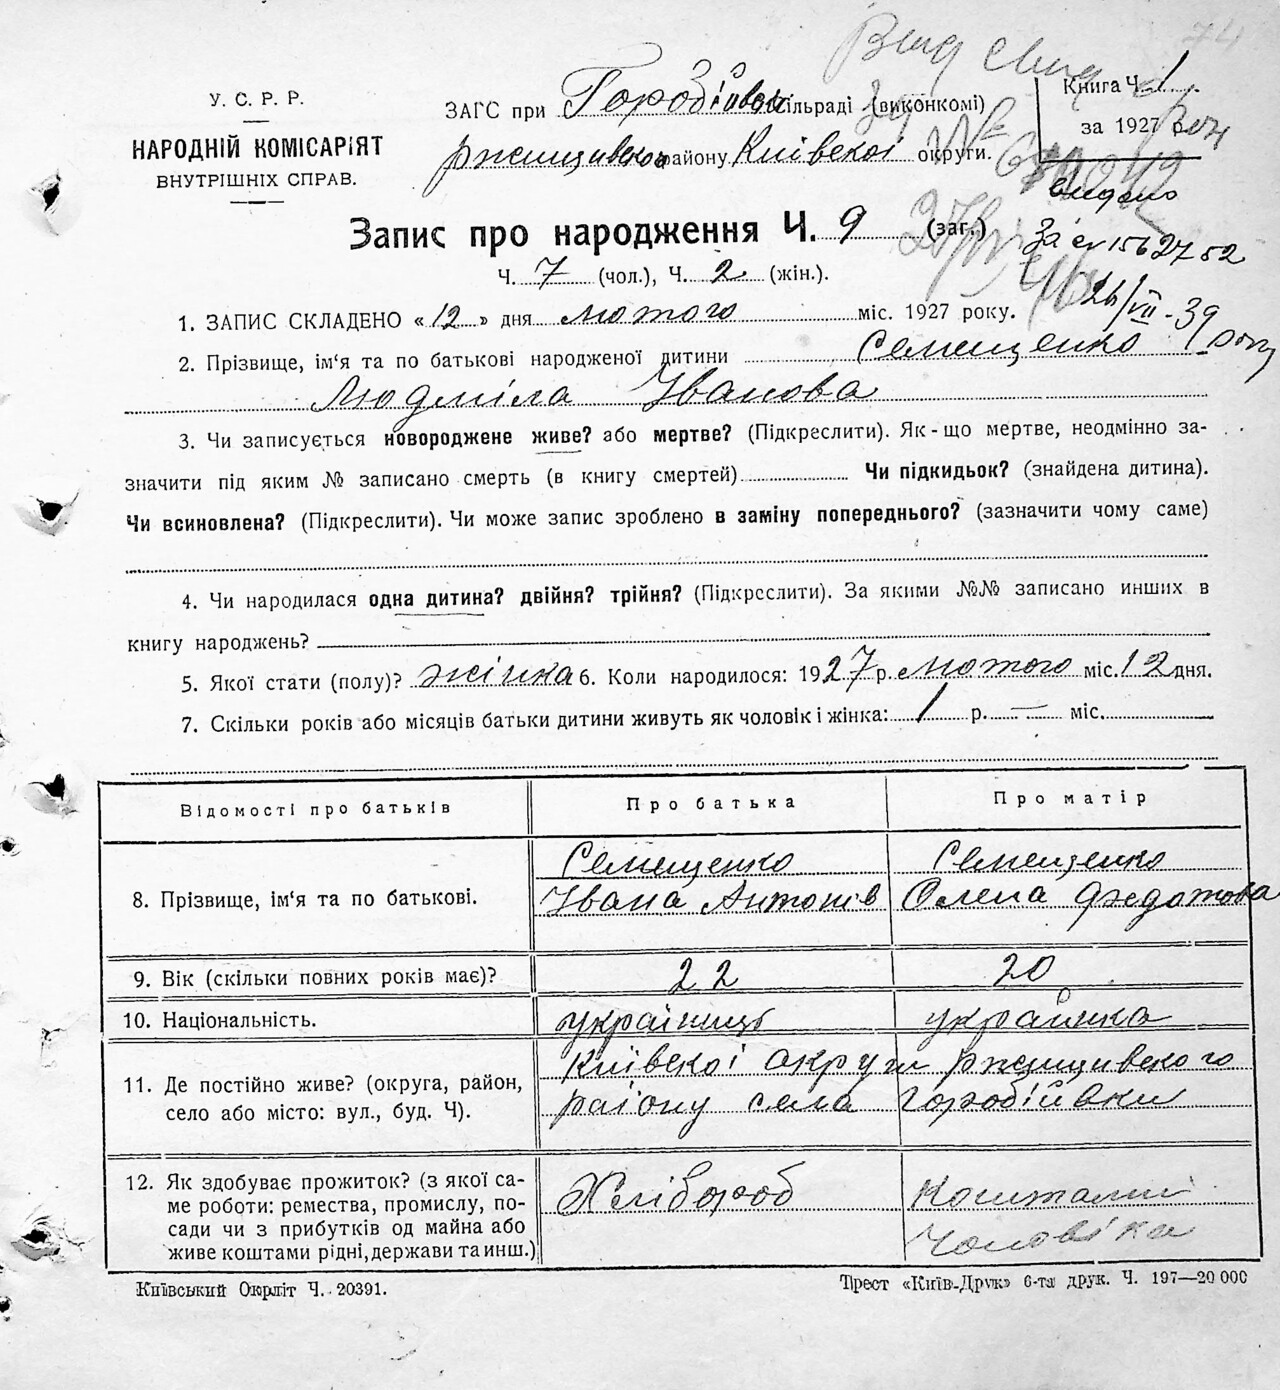 74
Вид свид
У. С. Р. Р.
НАРОДНІЙ КОМІСАРІЯТ
ВНУТРІШНІХ СПРАВ.
ЗАГС при Горобіївськ сільраді (виконкомі)
ржищивського району Київскоі округи.
Книга Ч. 1
за 1927 р.
видано
За св 1562752
26/VII - 39 року
Запис про народження Ч. 9 (заг.)
Ч. 7 (чол.), Ч. 2 (жін.).
1. ЗАПИС СКЛАДЕНО «12» дня лютого міс. 1927 року.
2. Прізвище, ім'я та по батькові народженої дитини Семещенко
Людміла Іванова
3. Чи записується новороджене живе? або мертве? (Підкреслити). Як-що мертве, неодмінно за-
значити під яким № записано смерть (в книгу смертей) Чи підкидьок? (знайдена дитина).
Чи всиновлена? (Підкреслити). Чи може запис зроблено в заміну попереднього? (зазначити чому саме)
4. Чи народилася одна дитина? двійня? трійня? (Підкреслити). За якими №№ записано инших в
книгу народжень?
5. Якої стати (полу)? жінка 6. Коли народилося: 1927 р. лютого міс. 12 дня.
7. Скільки років або місяців батьки дитини живуть як чоловік і жінка: 1 р. — міс.
Відомості про батьків Про батька Про матір
8. Прізвище, ім'я та по батькові.
Семещенко Семещенко
Івана Антонів Олена Федотова
9. Вік (скільки повних років має)? 22 20
10. Національність. українець українка
11. Де постійно живе? (округа, район,
село або місто: вул., буд. Ч).
Київскоі округи ржищивского
району села Горобіївки
12. Як здобуває прожиток? (з якої са-
ме роботи: ремества, промислу, по-
сади чи з прибутків од майна або
живе коштами рідні, держави та инш.)
Хлібороб коштами
чоловіка
Київський Окрліт Ч. 20391.
Трест «Київ-Друк» 6-та друк. Ч. 197—20 000